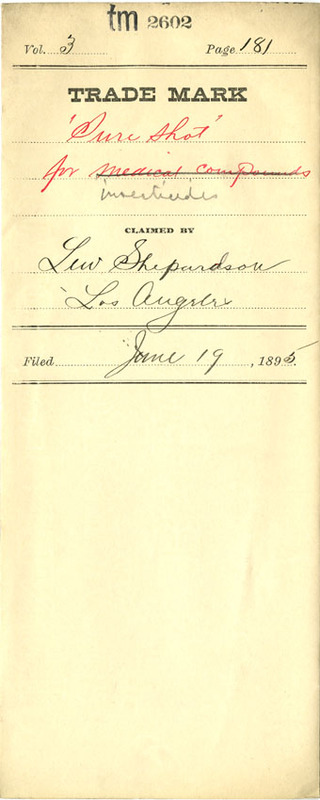 tm 2602
Vol. 3 Page 181
TRADE MARK
"Cure Shot"
for medical compounds
insecticides
CLAIMED BY
Lew Shepardson
Los Angeles
Filed June 19, 1895.